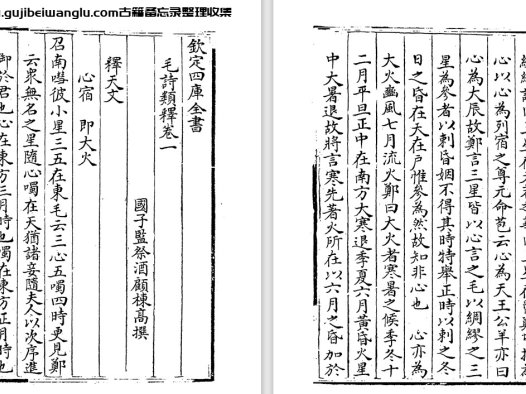 .gujibeiwanglu.com古籍备忘录整理收集
欽定四庫全書
毛詩類釋卷一
國子監祭酒顧棟高撰
釋天文
心宿 即大火
召南嘒彼小星三五在東毛云三心五噣四時更見鄭
云衆無名之星隨心噣在天猶諸妾隨夫人以次序進
御於君也心在東方三月時也噣在東方正月時也
心以心為列宿之尊元命苞云心為天王公羊亦曰
心為大辰故鄭言三星皆以心言之毛以綢繆之三
星為參者以刺昏姻不得其時特舉正時以刺之冬
日之昏在天在戶惟參為然故知非心也 心亦為
大火豳風七月流火鄭曰大火者寒暑之候季冬十
二月平旦正中在南方大寒退季夏六月黃昏火星
中大暑退故將言寒先著火所在以六月之昏加於